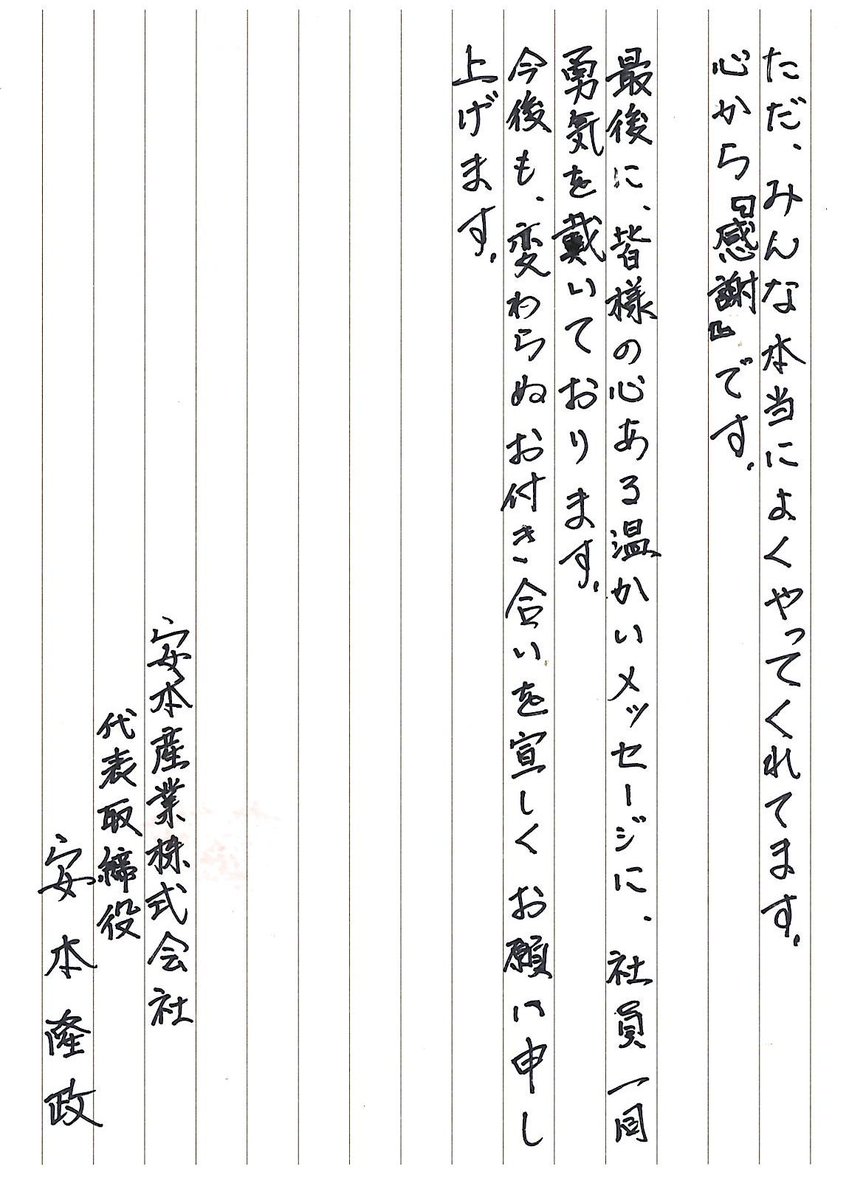 ただ、みんな本当によくやってくれてます。
心から『感謝』です。
最後に、皆様の心ある温かいメッセージに、社員一同
勇気を戴いております。
今後も、変わらぬお付き合いを宜しくお願い申し
上げます。
安本産業株式会社
代表取締役
安本隆政